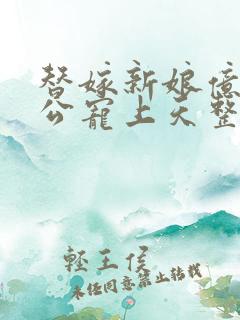 替嫁新娘億
公寵上天整
輕王侯
未任同意禁止轉載